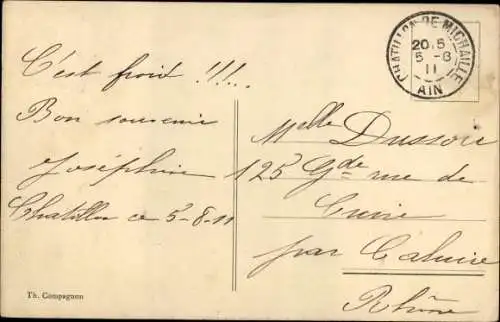 C'est froid !!!...
Bon souvenir
Joséphine
Chatillon ce 5-8-11
Th. Compagnon
CHATILLON-DE-MICHAILLE
20.5
5 -8
11
AIN
Melle
125 Gde rue de
Cuire
par Caluire
Rhône